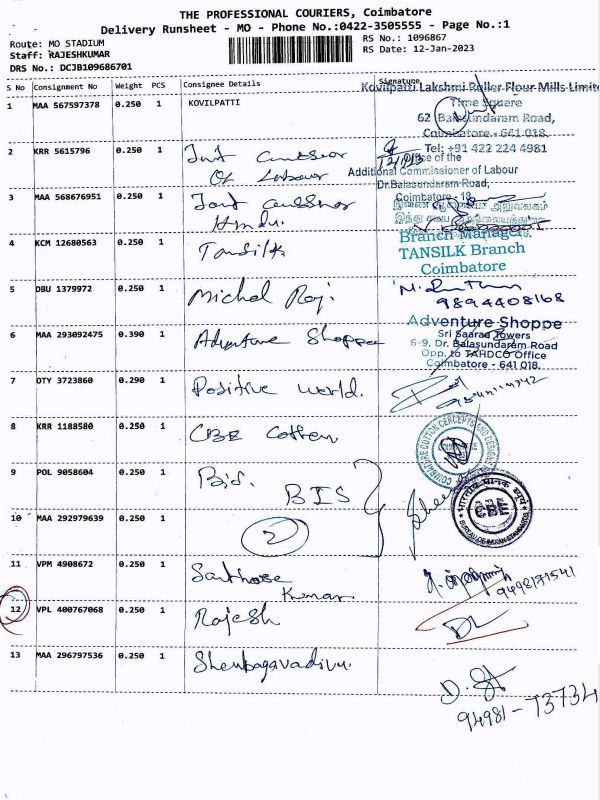 THE PROFESSIONAL COURIERS, Coimbatore
Delivery Runsheet - MO - Phone No.:0422-3505555 - Page No.:1
Route: MO STADIUM
RS No.: 1096867
Staff: RAJESHKUMAR
RS Date: 12-Jan-2023
DRS No.: DCJB109686701
S No Consignment No Weight PCS Consignee Details Signature
Kovilpatti Lakshmi Roller Flour Mills Limite
1 MAA 567597378 0.250 1 KOVILPATTI
Time Square
62 Balasundaram Road,
Coimbatore - 641 018.
Tel: +91 422 224 4981
2 KRR 5615796 0.250 1 Of Labour
Office of the
Additional Commissioner of Labour
Dr.Balasundaram Road,
Coimbatore - 18
3 MAA 568676951 0.250 1
4 KCM 12680563 0.250 1 Tansilk
Branch Manager
TANSILK Branch
Coimbatore
5 DBU 1379972 0.250 1 Michel Raj.
9894408168
6 MAA 293092475 0.390 1 Adventure Shoppe
Adventure Shoppe
Sri Saarad Towers
6-9, Dr. Balasundaram Road
Opp. to TAHDCO Office
Coimbatore - 641 018.
7 DTY 3723860 0.290 1 Positive world.
8 KRR 1188580 0.250 1 CBE Cotten
COIMBATORE COTTON CONCEPTS AND DESIGNS
9 POL 9058604 0.250 1 BIS
भारतीय मानक ब्यूरो
CBE
BUREAU OF INDIAN STANDARDS
10 MAA 292979639 0.250 1 2
11 VPM 4908672 0.250 1 Santhose Kumar
9498171541
12 VPL 400767068 0.250 1 Rajesh
13 MAA 296797536 0.250 1 Shenbagavadivu.
94981-73734